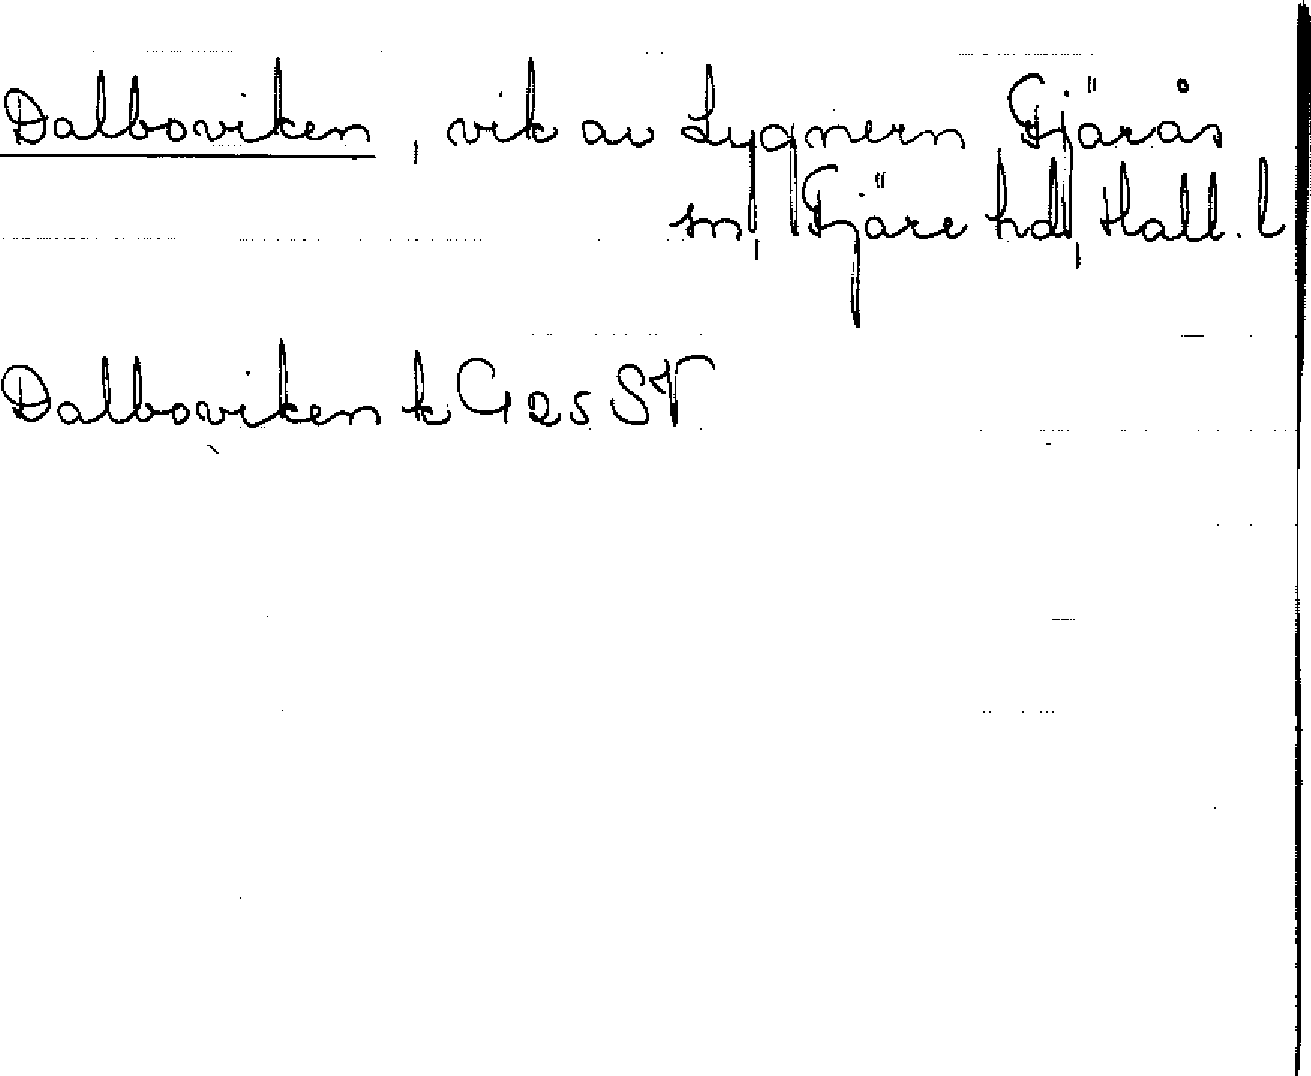 Dalboviken, vik av Lygnern Fjärås
sn, Fjäre hd, Hall. l
Dalboviken k G 25 SV